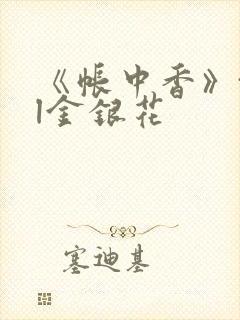 《帐中香》
|金银花
塞迪基